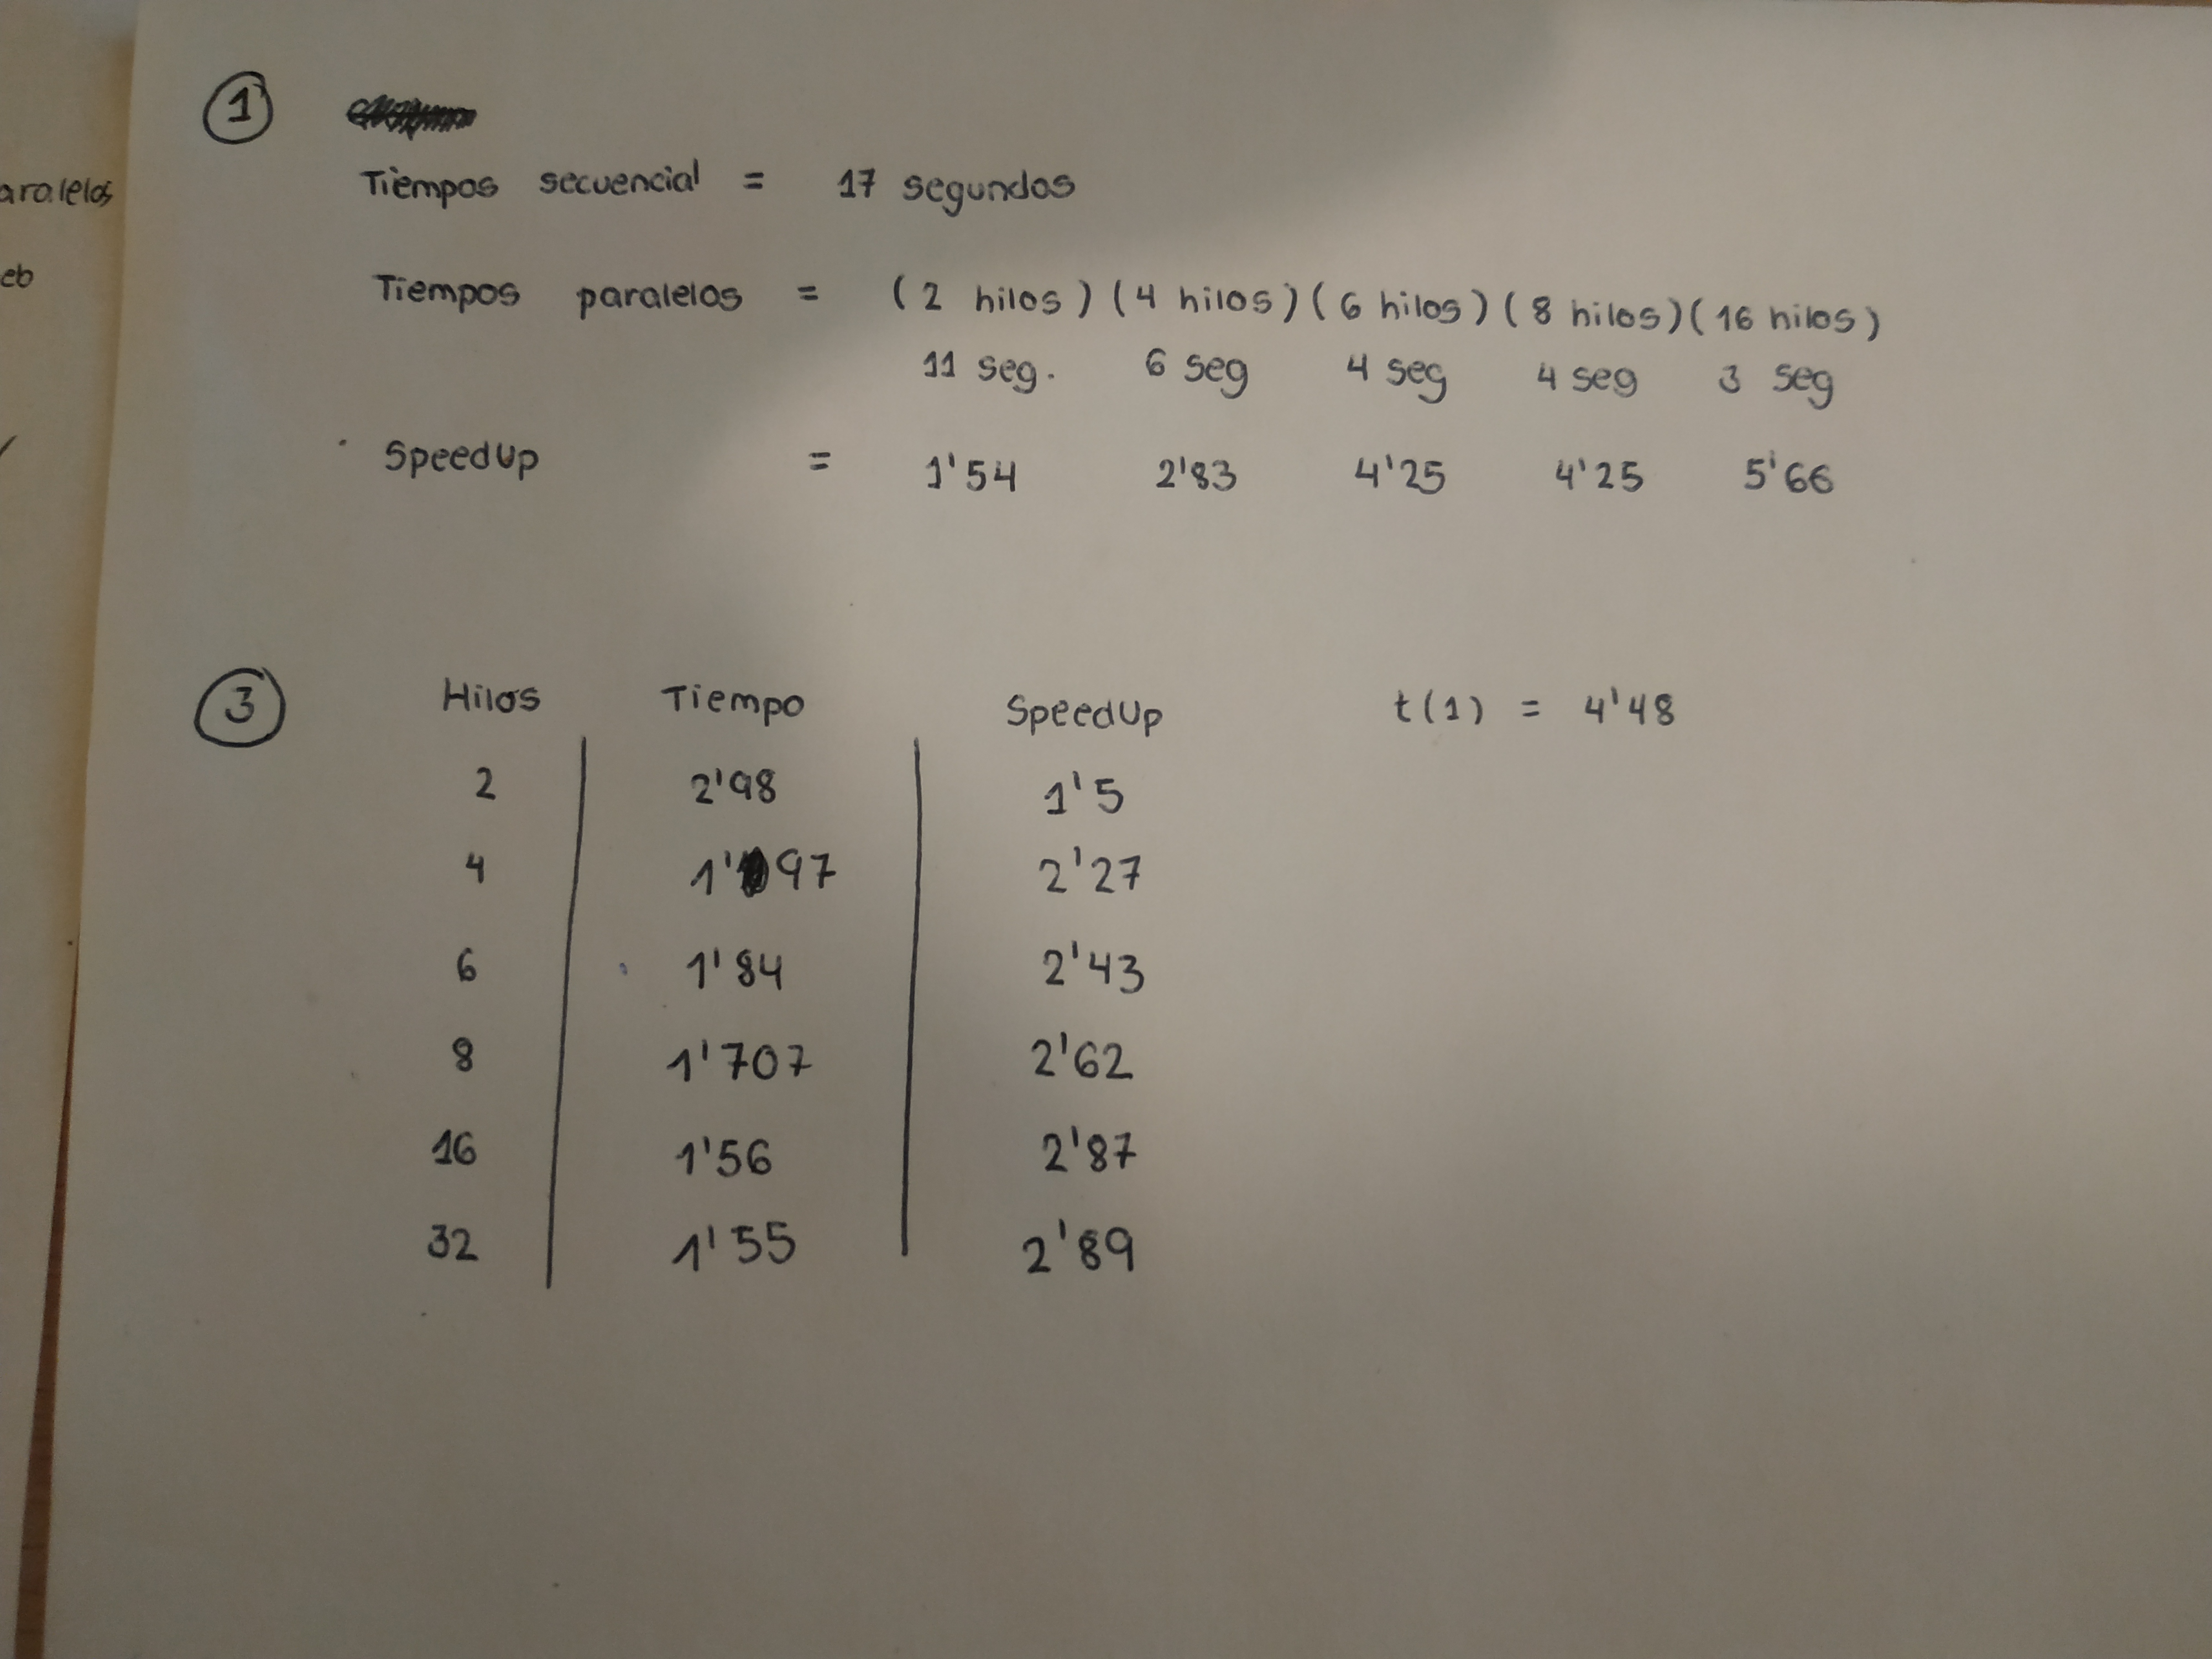 aralelos
eb
1
Tiempos secuencial = 17 segundos
Tiempos paralelos = (2 hilos) (4 hilos) (6 hilos) (8 hilos) (16 hilos)
11 seg. 6 seg 4 seg 4 seg 3 seg
Speedup = 1'54 2'83 4'25 4'25 5'66
3 Hilos Tiempo Speedup t(1) = 4'48
2 2'98 1'5
4 1'97 2'27
6 1'84 2'43
8 1'707 2'62
16 1'56 2'87
32 1'55 2'89